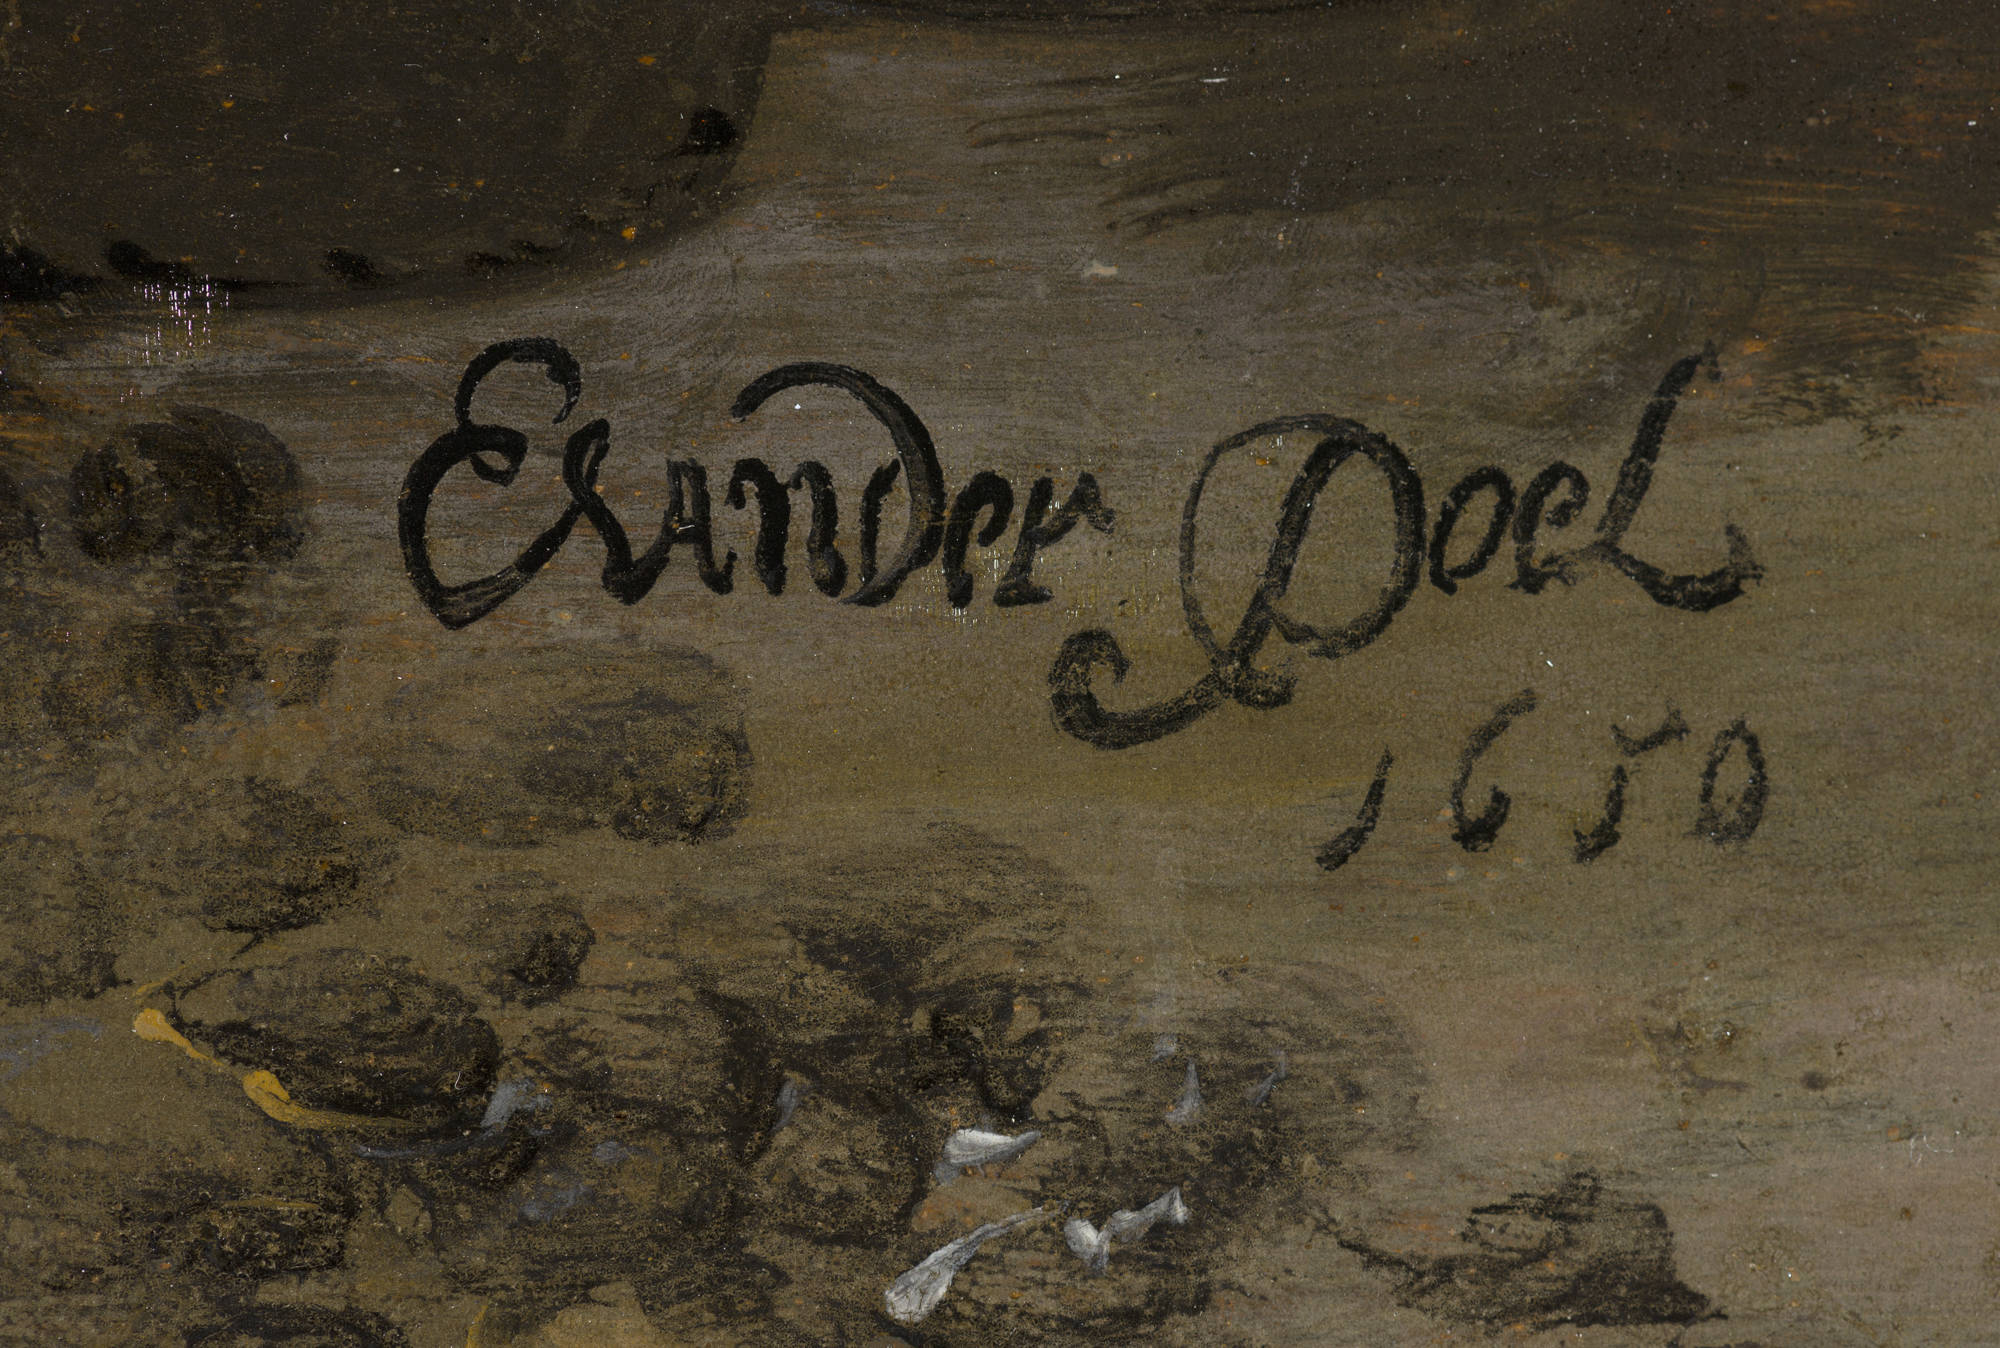 EvanDer Poel
1650